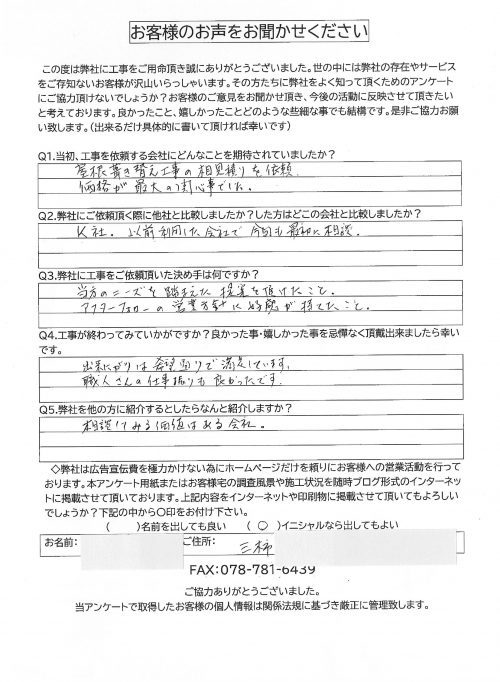 お客様のお声をお聞かせください
この度は弊社に工事をご用命頂き誠にありがとうございました。世の中には弊社の存在やサービス
をご存知ないお客様が沢山いらっしゃいます。その方たちに弊社をよく知って頂くためのアンケート
にご協力頂けないでしょうか?お客様のご意見をお聞かせ頂き、今後の活動に反映させて頂きたい
と考えております。良かったこと、嬉しかったことどのような些細な事でも結構です。是非ご協力お願
い致します。(出来るだけ具体的に書いて頂ければ幸いです)
Q1.当初、工事を依頼する会社にどんなことを期待されていましたか?
屋根葺き替え工事の相見積りを依頼.
価格が最大の関心事でした。
Q2.弊社にご依頼頂く際に他社と比較しましたか?した方はどこの会社と比較しましたか?
K社。以前利用した会社で今回も最初に相談.
Q3.弊社に工事をご依頼頂いた決め手は何ですか?
当方のニーズを踏まえた提案を頂けたこと。
アフターフォローの営業方針に好感が持てたこと。
Q4.工事が終わってみていかがですか?良かった事・嬉しかった事を忌憚なく頂戴出来ましたら幸い
です。
出来上がりは希望通りで満足しています。
職人さんの仕事振りも良かったです.
Q5.弊社を他の方に紹介するとしたらなんと紹介しますか?
相談してみる価値はある会社。
◇弊社は広告宣伝費を極力かけない為にホームページだけを頼りにお客様への営業活動を行って
おります。本アンケート用紙またはお客様宅の調査風景や施工状況を随時ブログ形式のインターネッ
トに掲載させて頂いております。上記内容をインターネットや印刷物に掲載させて頂いてもよろしい
でしょうか?下記の中から〇印をお付け下さい。
( )名前を出しても良い (○)イニシャルなら出してもよい
お名前: ご住所: 三木市
FAX:078-781-6439
ご協力ありがとうございました。
当アンケートで取得したお客様の個人情報は関係法規に基づき厳正に管理致します。